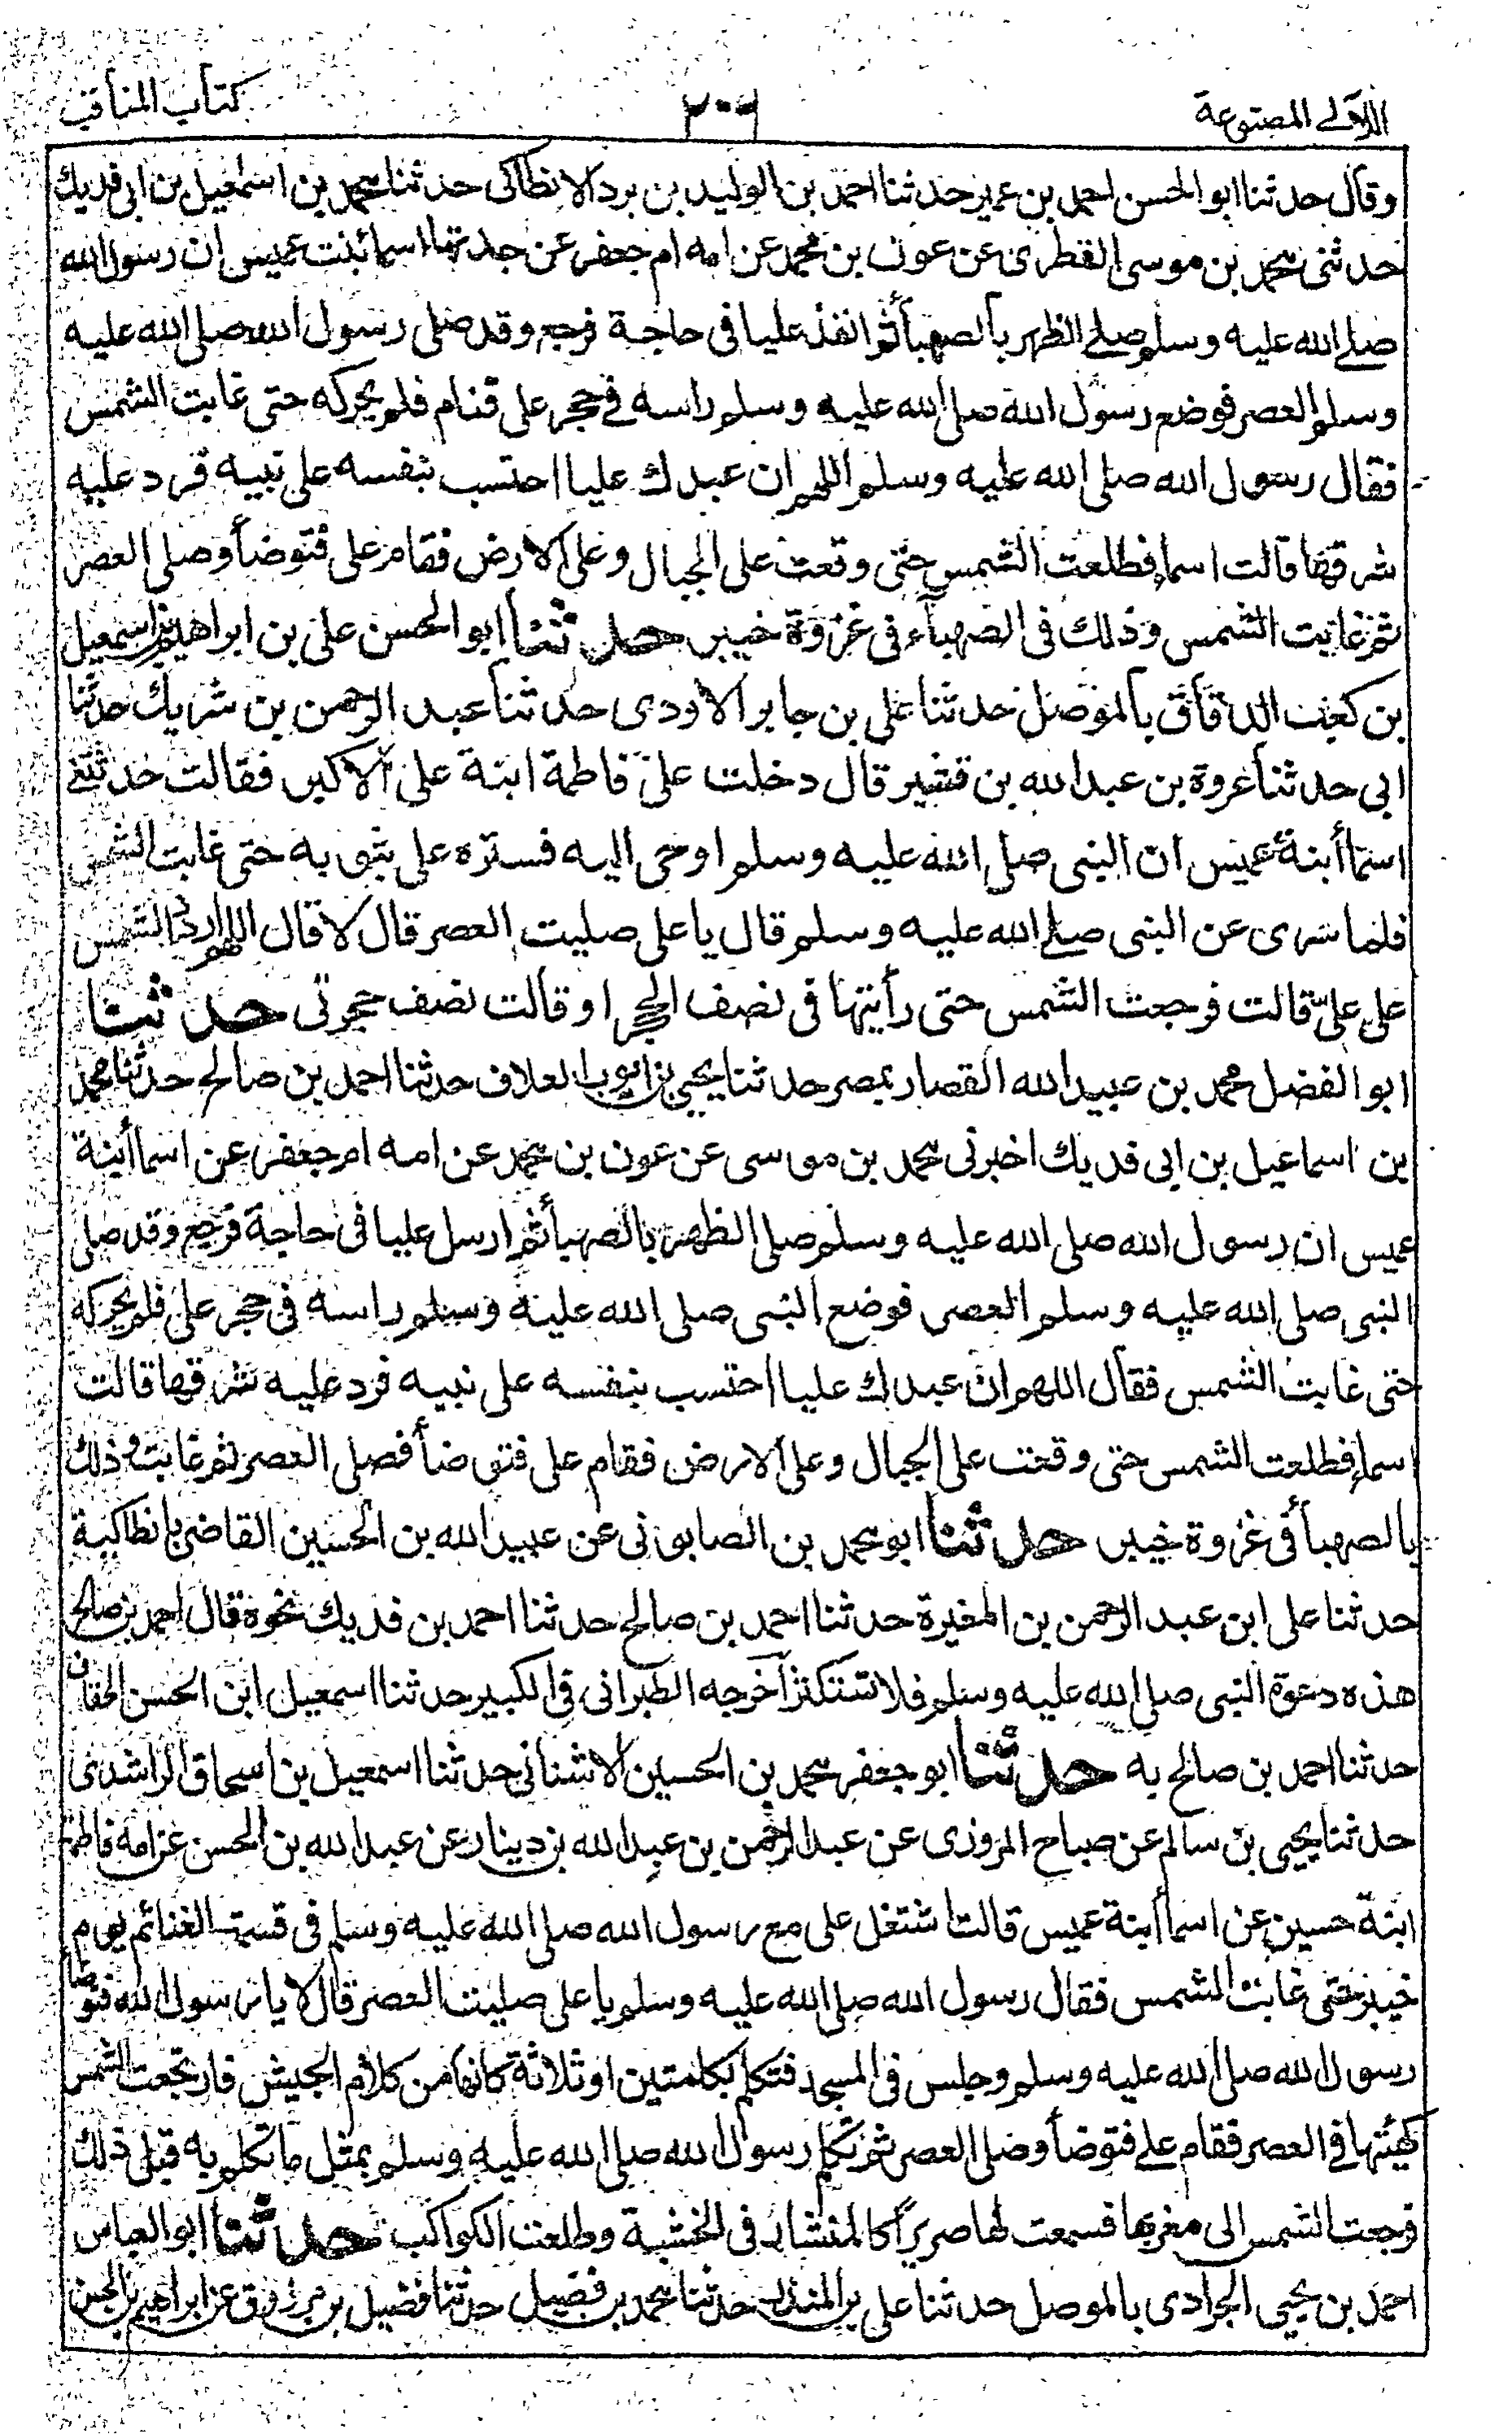 اللآلى المصنوعة
٢٠٦
كتاب المناقب
وقال حدثنا ابو الحسن احمد بن عمير حدثنا احمد بن الوليد بن برد الانطاكى حدثنا محمد بن اسمعيل بن ابى فديك
حدثنى محمد بن موسى الفطرى عن عون بن محمد عن امه ام جعفر عن جدتها اسماء بنت عميس ان رسول الله
صلى الله عليه وسلم صلى الظهر بالصهبا ثم انفذ عليا فى حاجة فرجع وقد صلى رسول الله صلى الله عليه
وسلم العصر فوضع رسول الله صلى الله عليه وسلم راسه فى حجر على فنام فلم يحركه حتى غابت الشمس
فقال رسول الله صلى الله عليه وسلم اللهم ان عبدك عليا احتسب بنفسه على نبيه فرد عليه
شرقها قالت اسماء فطلعت الشمس حتى وقعت على الجبال وعلى الارض فقام على فتوضأ وصلى العصر
ثم غابت الشمس وذلك فى الصهباء فى غزوة خيبر حدثنا ابو الحسن على بن ابراهيم بن اسمعيل
بن كعب الدقاق بالموصل حدثنا على بن جابر الاودى حدثنا عبد الرحمن بن شريك حدثنا
ابى حدثنا عروة بن عبد الله بن قشير قال دخلت على فاطمة ابنة على الاكبر فقالت حدثتنى
اسما أبنة عميس ان النبى صلى الله عليه وسلم اوحى اليه فستره على بثوبه حتى غابت الشمس
فلما سرى عن النبى صلى الله عليه وسلم قال يا على صليت العصر قال لا قال اللهم اردد الشمس
على علىّ قالت فرجعت الشمس حتى رأيتها فى نصف الحجر او قالت نصف حجرتى حدثنا
ابو الفضل محمد بن عبيد الله القصار بمصر حدثنا يحيى بن ايوب العلاف حدثنا احمد بن صالح حدثنا محمد
بن اسماعيل بن ابى فديك اخبرنى محمد بن موسى عن عون بن محمد عن امه ام جعفر عن اسما أبنة
عميس ان رسول الله صلى الله عليه وسلم صلى الظهر بالصهبا ثم ارسل عليا فى حاجة فرجع وقد صلى
النبى صلى الله عليه وسلم العصر فوضع النبى صلى الله عليه وسلم راسه فى حجر على فلم يحركه
حتى غابت الشمس فقال اللهم ان عبدك عليا احتسب بنفسه على نبيه فرد عليه شرقها قالت
اسماء فطلعت الشمس حتى وقعت على الجبال وعلى الارض فقام على فتوضأ فصلى العصر ثم غابت وذلك
بالصهبا فى غزوة خيبر حدثنا ابو محمد بن الصابونى عن عبيد الله بن الحسين القاضى بانطاكية
حدثنا على ابن عبد الرحمن بن المغيرة حدثنا احمد بن صالح حدثنا احمد بن فديك نحوه قال احمد بن صالح
هذه دعوة النبى صلى الله عليه وسلم فلا تستكثر اخرجه الطبرانى فى الكبير حدثنا اسمعيل ابن الحسن الخفاف
حدثنا احمد بن صالح به حدثنا ابو جعفر محمد بن الحسين الاشنانى حدثنا اسمعيل بن اسحاق الراشدى
حدثنا يحيى بن سالم عن صباح المروزى عن عبد الرحمن بن عبد الله بن دينار عن عبد الله بن الحسن عن امه فاطمة
ابنة حسين عن اسما أبنة عميس قالت اشتغل على مع رسول الله صلى الله عليه وسلم فى قسمة الغنائم يوم
خيبر حتى غابت الشمس فقال رسول الله صلى الله عليه وسلم يا على صليت العصر قال لا يا رسول الله فتوضأ
رسول الله صلى الله عليه وسلم وجلس فى المسجد فتكلم بكلمتين او ثلاثة كانها من كلام الجيش فارتجعت الشمس
كهيئتها فى العصر فقام على فتوضأ وصلى العصر ثم تكلم رسول الله صلى الله عليه وسلم بمثل ما تكلم به قبل ذلك
فرجعت الشمس الى مغربها فسمعت لها صريرا كالمنشار فى الخشبة وطلعت الكواكب حدثنا ابو العباس
احمد بن يحيى الجرادى بالموصل حدثنا على بن المنذر حدثنا محمد بن فضيل حدثنا فضيل بن مرزوق عن ابراهيم بن الحسن